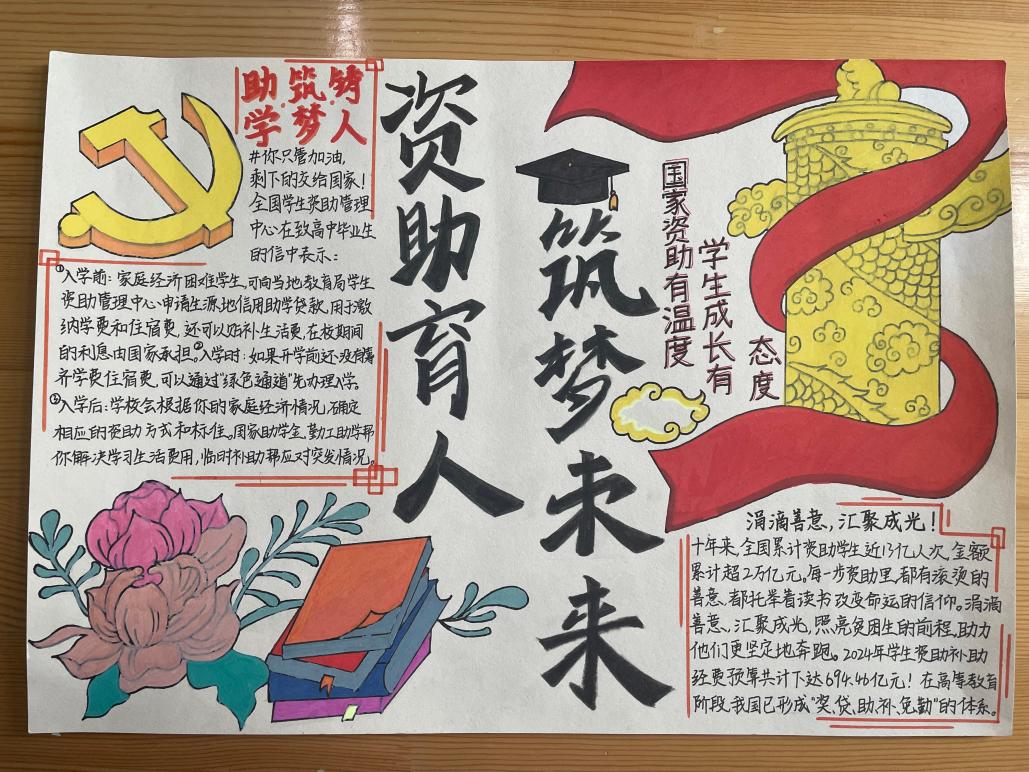 助·筑·铸
学·梦·人
#你只管加油,
剩下的交给国家!
全国学生资助管理
中心在致高中毕业生
的信中表示:
①入学前:家庭经济困难学生,可向当地教育局学生
资助管理中心申请生源地信用助学贷款,用于缴
纳学费和住宿费,还可以贴补生活费,在校期间
的利息由国家承担。②入学时:如果开学前还没有筹
齐学费住宿费,可以通过“绿色通道”先办理入学。
③入学后:学校会根据你的家庭经济情况,确定
相应的资助方式和标准。国家助学金、勤工助学帮
你解决学习生活费用,临时补助帮应对突发情况。
资助育人
筑梦未来
国家资助有温度
学生成长有
态度
涓滴善意,汇聚成光!
十年来,全国累计资助学生近13亿人次,金额
累计超2万亿元。每一步资助里,都有滚烫的
善意、都托举着读书改变命运的信仰。涓滴
善意、汇聚成光,照亮贫困生的前程,助力
他们更坚定地奔跑。2024年学生资助补助
经费预算共计下达694.46亿元!在高等教育
阶段,我国已形成“奖、贷、助、补、免、勤”的体系。